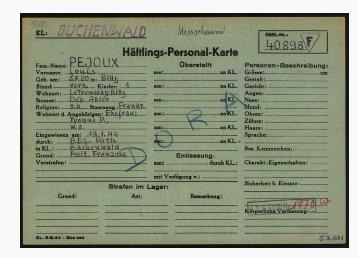 KL: BUCHENWALD
Meerschaum
HÄFTL.-Nr.:
40898 F
Häftlings-Personal-Karte
Fam.-Name: PEJOUX
Vorname: Louis
Geb. am: in: Billy
Stand: verh. Kinder: 1
Wohnort:
Strasse: Dep. Allier
Religion: r.k. Staatsang.: Frankr.
Wohnort d. Angehörigen: Ehefrau:
Yvonne P.
w.o.
Eingewiesen am: 19.1.44
durch: B.D.S. Paris
in KL.: Buchenwald
Grund: Polit. Franzose
Vorstrafen:
Überstellt
am: an KL.
am: an KL.
am: an KL.
am: an KL.
am: an KL.
am: an KL.
DORA
Entlassung:
am: durch KL.:
mit Verfügung v.:
Personen-Beschreibung:
Grösse: cm
Gestalt:
Gesicht:
Augen:
Nase:
Mund:
Ohren:
Zähne:
Haare:
Sprache:
Bes. Kennzeichen:
Charakt.-Eigenschaften:
Sicherheit b. Einsatz:
Körperliche Verfassung:
Strafen im Lager:
Grund: Art: Bemerkung:
53.601